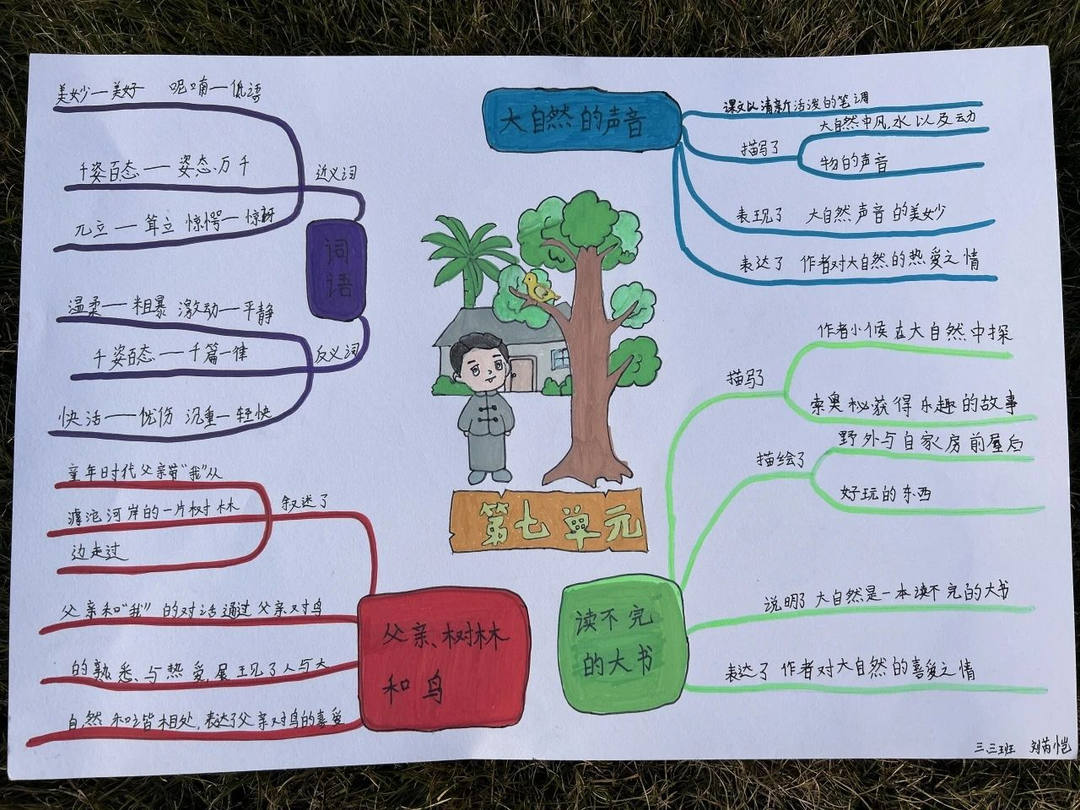 美妙—美好 呢喃—低语
千姿百态——姿态万千
近义词
兀立——耸立 惊愕—惊讶
词语
温柔——粗暴 激动—平静
千姿百态——千篇一律
反义词
快活——忧伤 沉重—轻快
大自然的声音
课文以清新活泼的笔调
描写了
大自然中风,水以及动
物的声音
表现了 大自然声音的美妙
表达了 作者对大自然的热爱之情
第七单元
童年时代父亲带"我"从
滹沱河岸的一片树林
边走过
叙述了
父亲和"我"的对话通过父亲对鸟
的熟悉、与热爱,展现了人与大
自然和谐相处,表达了父亲对鸟的喜爱
父亲、树林
和鸟
读不完
的大书
描写了
作者小候在大自然中探
索奥秘获得乐趣的故事
描绘了
野外与自家房前屋后
好玩的东西
说明了大自然是一本读不完的大书
表达了作者对大自然的喜爱之情
三三班 刘芮恺